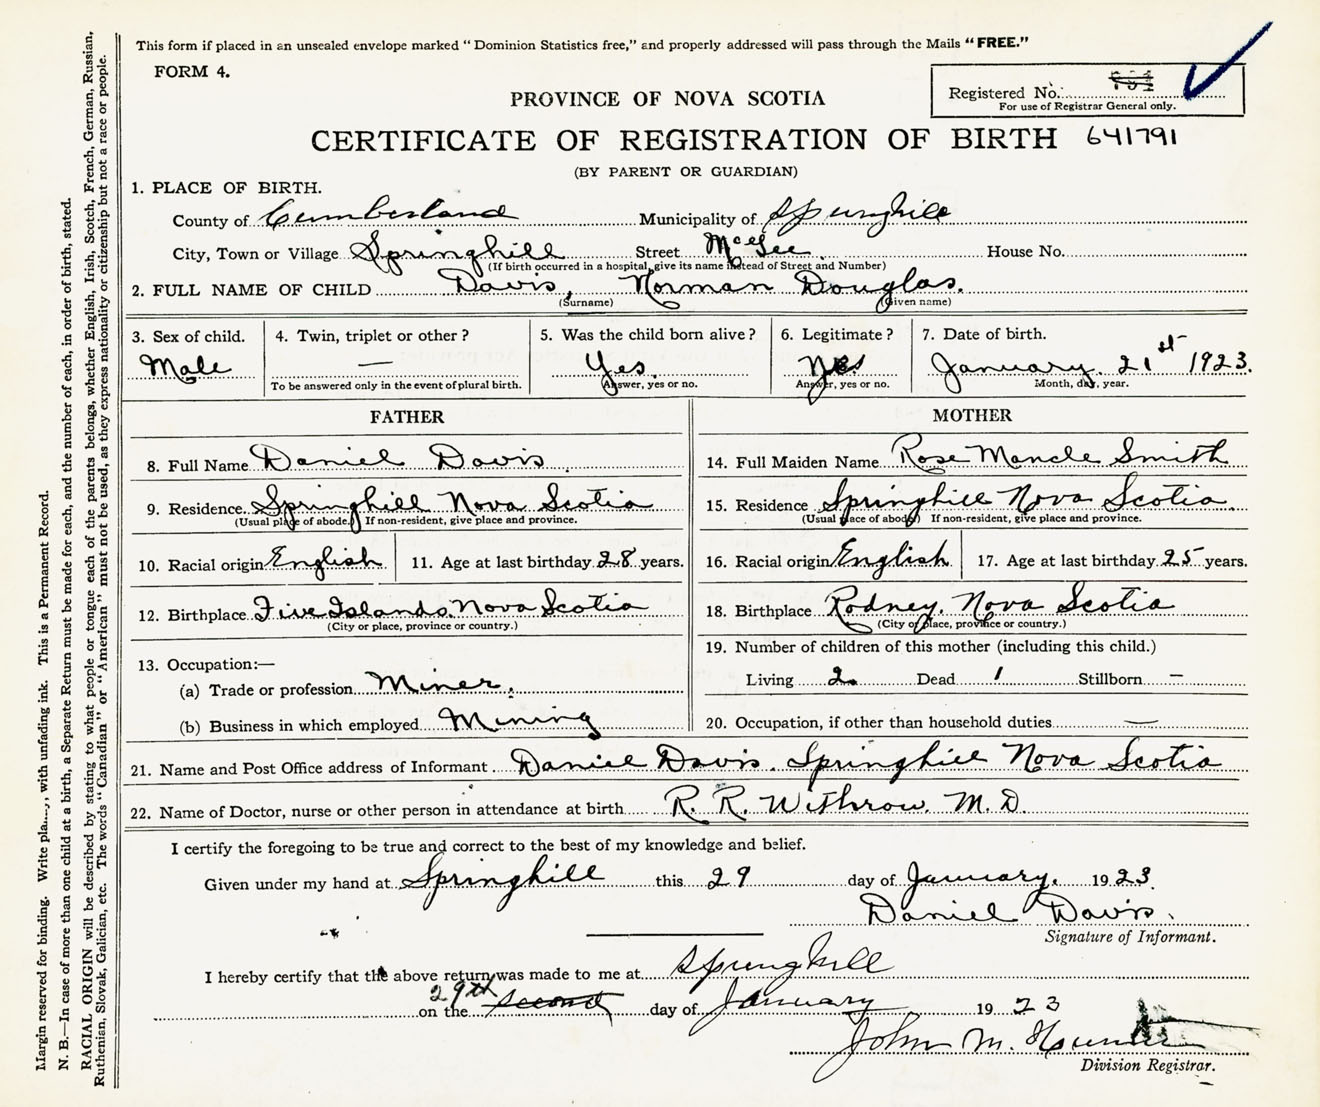 This form if placed in an unsealed envelope marked "Dominion Statistics free," and properly addressed will pass through the Mails "FREE."
FORM 4.
Registered No.
For use of Registrar General only.
PROVINCE OF NOVA SCOTIA
CERTIFICATE OF REGISTRATION OF BIRTH 641791
(BY PARENT OR GUARDIAN)
1. PLACE OF BIRTH.
County of Cumberland Municipality of Springhill
City, Town or Village Springhill Street McGee House No.
(If birth occurred in a hospital, give its name instead of Street and Number)
2. FULL NAME OF CHILD Davis, Norman Douglas.
(Surname) (Given name)
3. Sex of child. 4. Twin, triplet or other? 5. Was the child born alive? 6. Legitimate? 7. Date of birth.
Male — Yes. Yes January. 21st 1923.
To be answered only in the event of plural birth. Answer, yes or no. Answer, yes or no. Month, day, year.
FATHER
8. Full Name Daniel Davis.
9. Residence Springhill Nova Scotia
(Usual place of abode.) If non-resident, give place and province.
10. Racial origin English 11. Age at last birthday 28 years.
12. Birthplace Five Islands, Nova Scotia
(City or place, province or country.)
13. Occupation:—
(a) Trade or profession Miner.
(b) Business in which employed Mining
MOTHER
14. Full Maiden Name Rose Mancle Smith
15. Residence Springhill Nova Scotia
(Usual place of abode) If non-resident, give place and province.
16. Racial origin English 17. Age at last birthday 25 years.
18. Birthplace Rodney, Nova Scotia
(City or place, province or country.)
19. Number of children of this mother (including this child.)
Living 2 Dead 1 Stillborn —
20. Occupation, if other than household duties —
21. Name and Post Office address of Informant Daniel Davis. Springhill Nova Scotia
22. Name of Doctor, nurse or other person in attendance at birth R. R. Withrow. M.D.
I certify the foregoing to be true and correct to the best of my knowledge and belief.
Given under my hand at Springhill this 29 day of January. 1923.
Daniel Davis.
Signature of Informant.
I hereby certify that the above return was made to me at Springhill
on the 29th second day of January 1923
John M. Hunter
Division Registrar.
Margin reserved for binding. Write with unfading ink. This is a Permanent Record.
N. B.—In case of more than one child at a birth, a Separate Return must be made for each, and the number of each, in order of birth, stated.
RACIAL ORIGIN will be described by stating to what people or tongue each of the parents belongs, whether English, Irish, Scotch, French, German, Russian,
Ruthenian, Slovak, Galician, etc. The words "Canadian" or "American" must not be used, as they express nationality or citizenship but not a race or people.